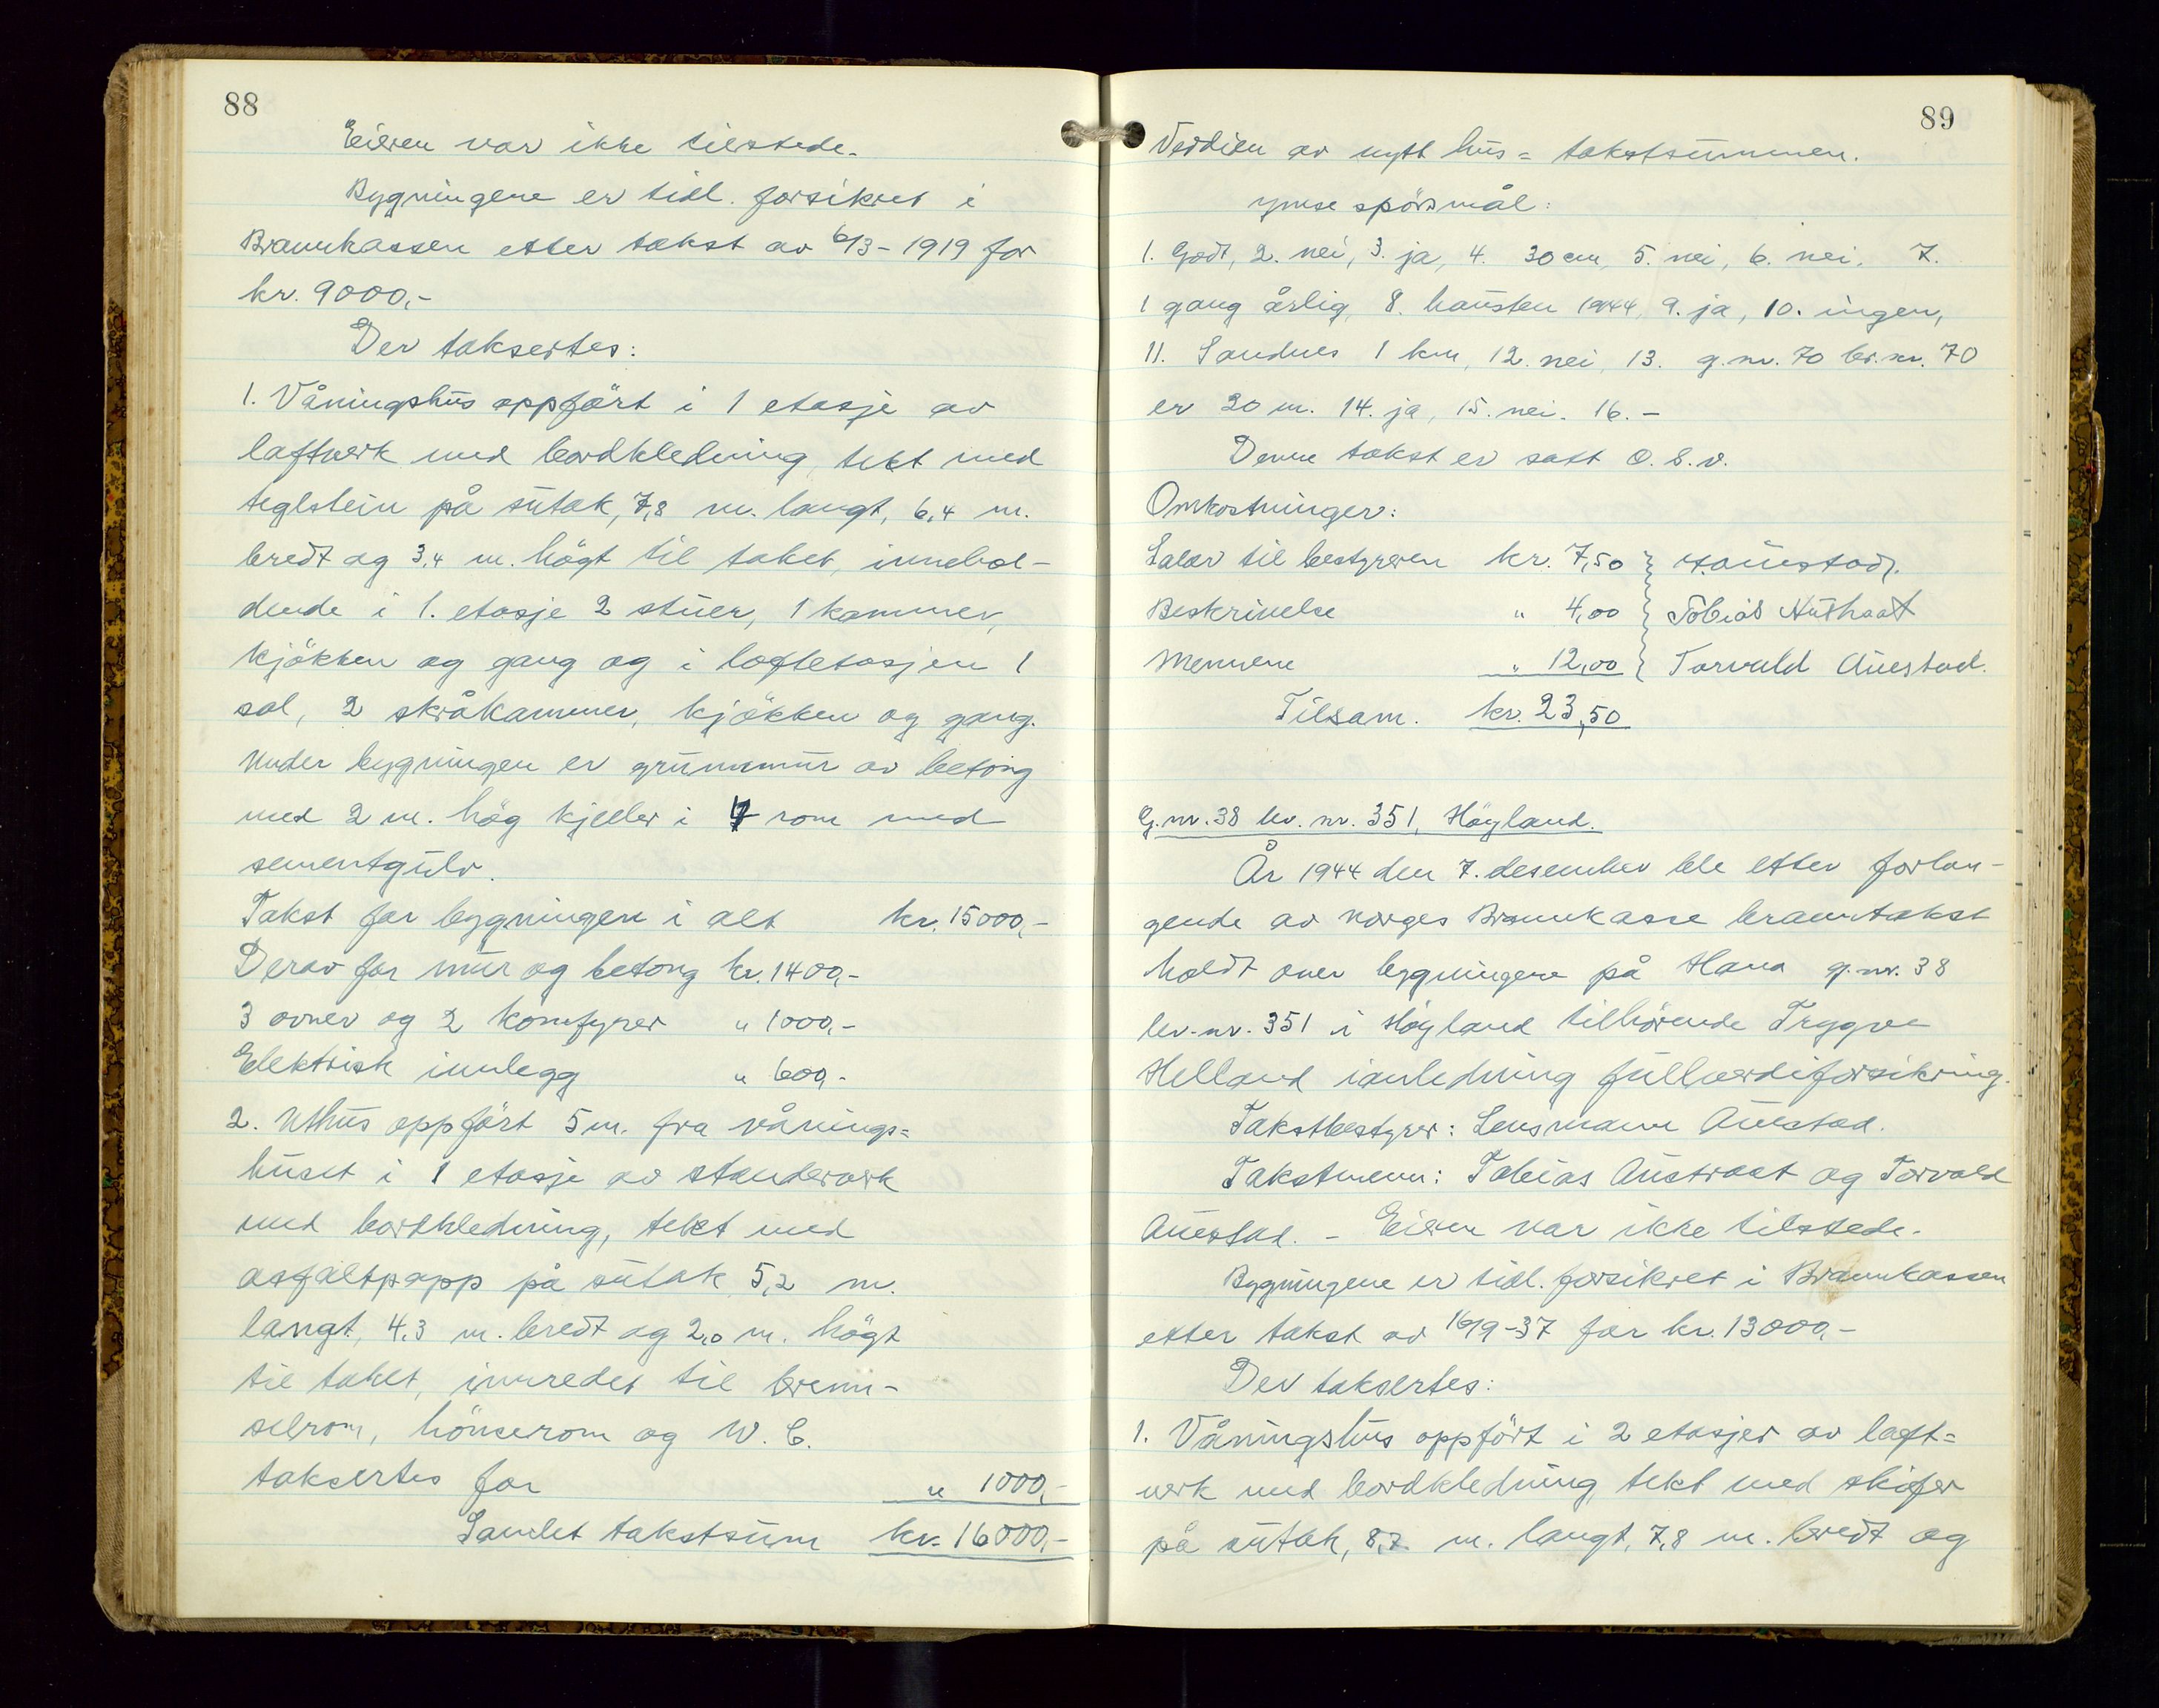 88
Eieren var ikke tilstede.
Bygningene er tidl. forsikret i
Brannkassen etter takst av 6/3-1919 for
kr. 9000,-
Der taksertes:
1. Våningshus oppfört i 1 etasje av
laftverk med bordkledning, tekt med
teglstein på sutak, 7,8 m. langt, 6,4 m.
bredt og 3,4 m. högt til taket, innehol-
dende i 1. etasje 2 stuer, 1 kammer,
kjökken og gang og i loftetasjen 1
sal, 2 skråkammer, kjökken og gang.
Under bygningen er grunnmur av betong
med 2 m. hög kjeller i 4 rom med
sementgulv.
Takst for bygningen i alt kr. 15000,-
Derav for mur og betong kr. 1400,-
3 ovner og 2 komfyrer " 1000,-
Elektrisk innlegg " 600,-
2. Uthus oppfört 5 m. fra vånings=
huset i 1 etasje av standerverk
med bordkledning, tekt med
asfaltpapp på sutak 5,2 m.
langt, 4,3 m. bredt og 2,0 m. högt
til taket, innredet til brenn-
selrom, hönserom og W. C.
taksertes for " 1000,-
Samlet takstsum kr. 16000,-
89
Verdien av nytt hus = takstsummen.
Ymse spörsmål:
1. Godt, 2. nei, 3. ja, 4. 30 cm, 5. nei, 6. nei, 7.
1 gang årlig, 8. hausten 1944, 9. ja, 10. ingen,
11. Sandnes 1 km, 12. nei, 13. g.nr. 70 br.nr. 70
er 20 m. 14. ja, 15. nei. 16. -
Denne takst er satt O. S. v.
Omkostninger:
Salær til bestyreren kr. 7,50 } H. Auestad.
Beskrivelse " 4,00 } Tobias Austraat
Mennene " 12,00 } Torvald Auestad.
Tilsam. kr. 23,50
G. nr. 38 br. nr. 351, Höyland.
År 1944 den 7. desember ble etter forlan-
gende av Norges Brannkasse branntakst
holdt over bygningene på Hana g. nr. 38
br. nr. 351 i Höyland tilhörende Trygve
Helland i anledning fullverdiforsikring.
Takstbestyrer: Lensmann Auestad.
Takstmenn: Tobias Austraat og Torvald
Auestad. - Eieren var ikke tilstede.
Bygningene er tidl. forsikret i Brannkassen
etter takst av 16/9-37 for kr. 13000,-
Der taksertes:
1. Våningshus oppfört i 2 etasjer av laft=
verk med bordkledning, tekt med skifer
på sutak, 8,7 m. langt, 7,8 m. bredt og